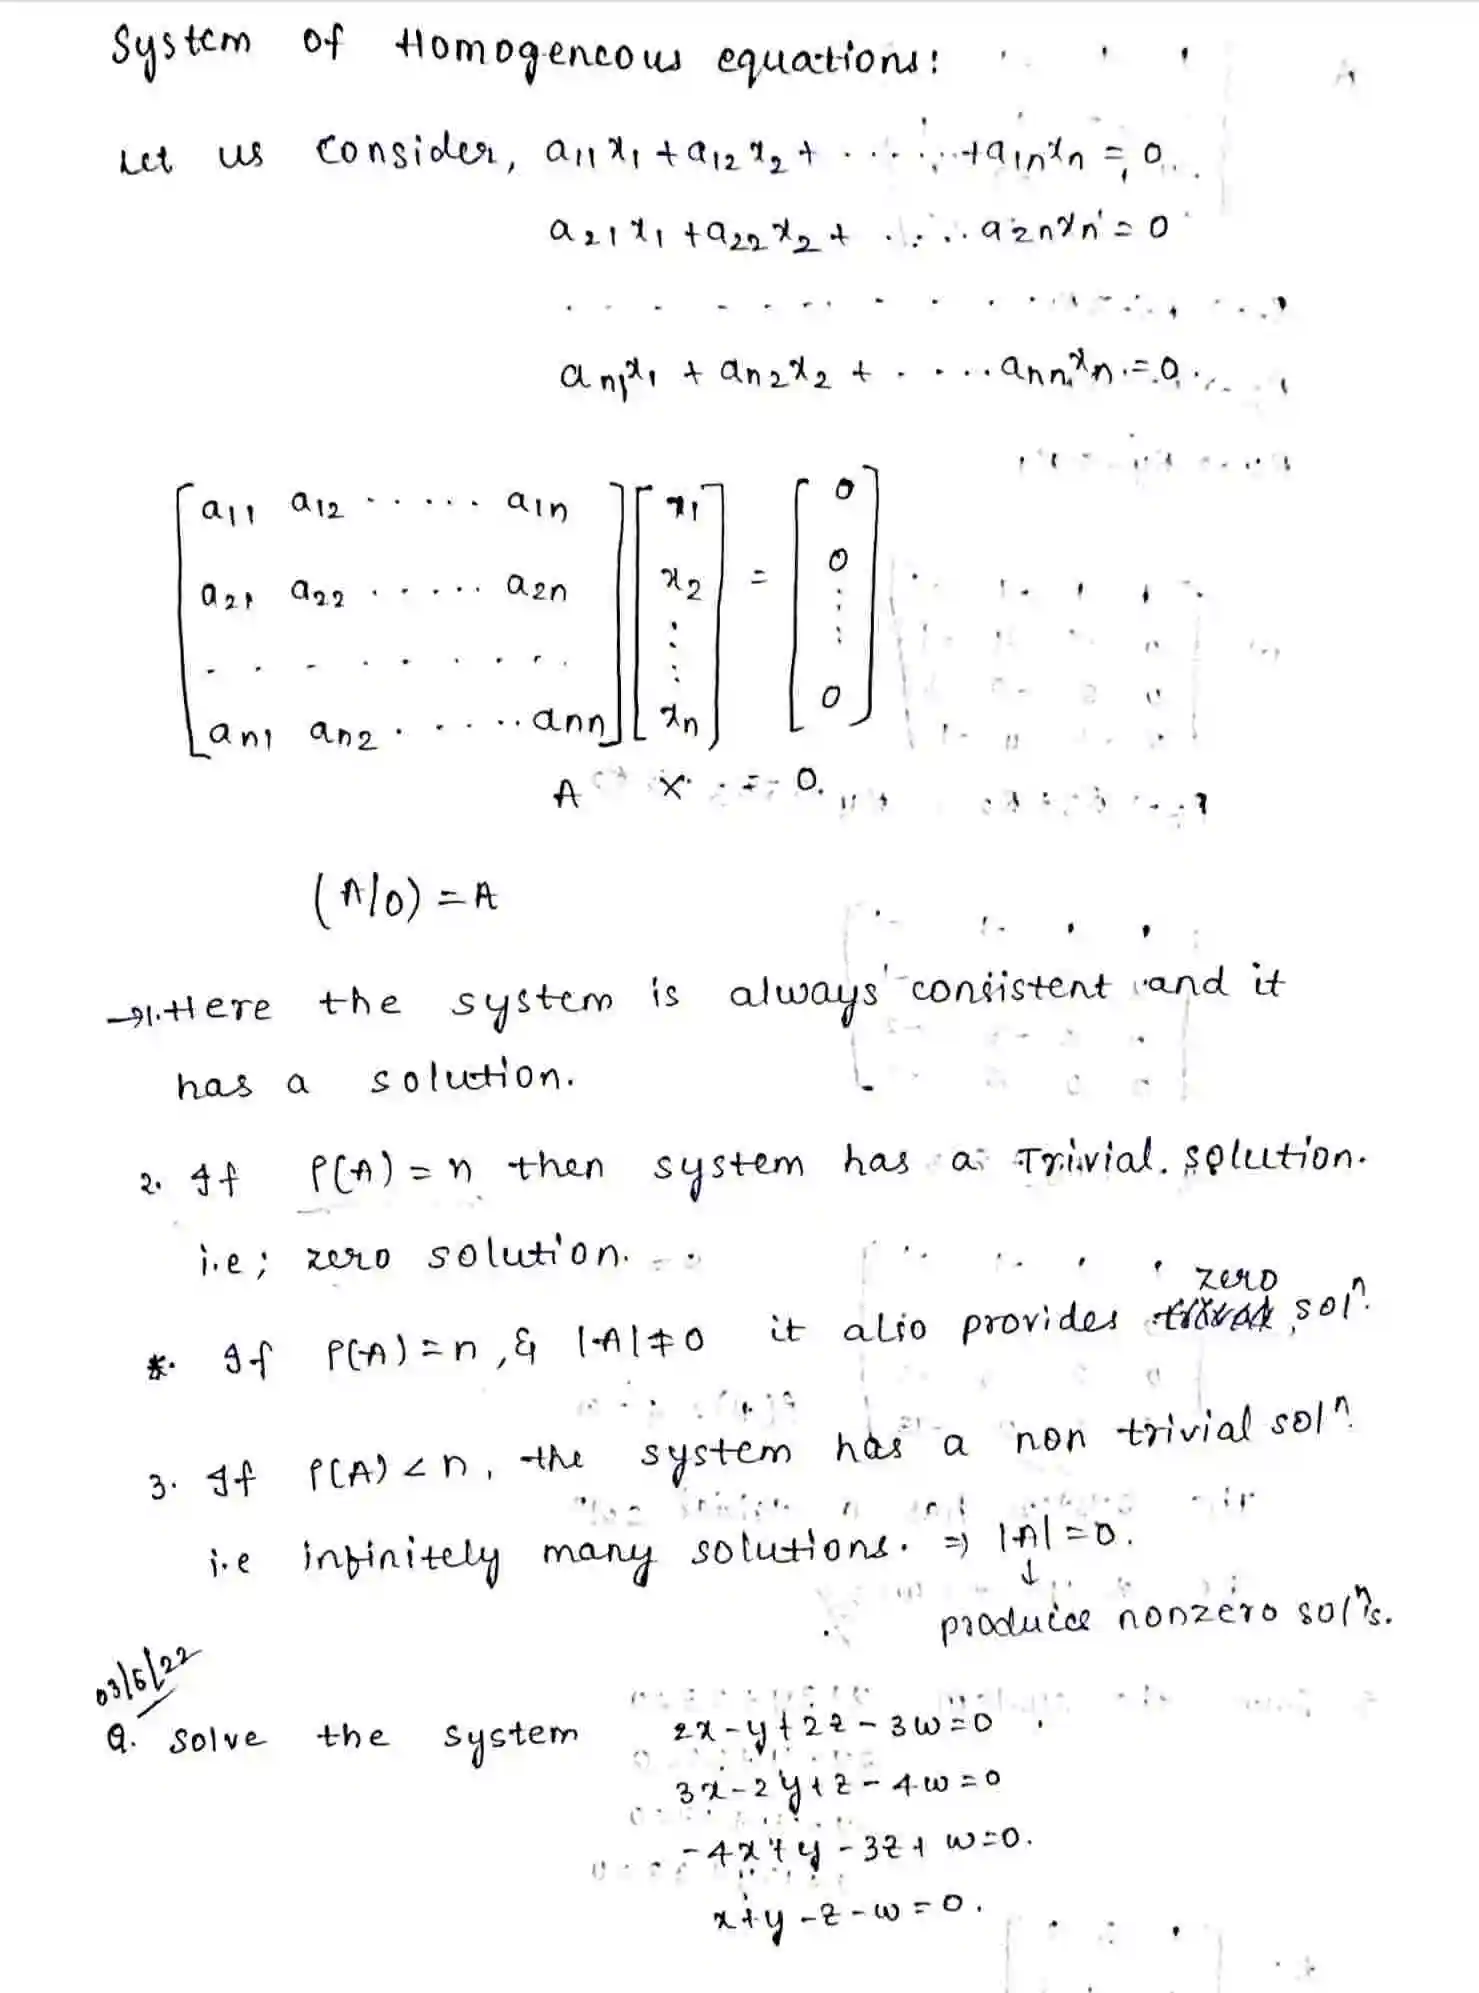 System of Homogeneous equations:
Let us consider, a11x1 + a12x2 + ...... + a1nxn = 0
a21x1 + a22x2 + ..... a2nxn = 0
. . . . . . . . . . . .
an1x1 + an2x2 + ..... annxn = 0.
[a11 a12 ..... a1n] [x1] = [0]
[a21 a22 ..... a2n] [x2] [0]
. . . . . . . . . ⋮ ⋮
[an1 an2 ..... ann] [xn] [0]
A X = 0.
(A/0) = A
→1. Here the system is always consistent and it
has a solution.
2. If ρ(A) = n then system has a Trivial solution.
i.e; zero solution.
*. If ρ(A) = n, & |A| ≠ 0 it also provides zero solⁿ.
3. If ρ(A) < n, the system has a non trivial solⁿ.
i.e infinitely many solutions. ⇒ |A| = 0.
↓
produce nonzero solⁿs.
03/6/22
Q. Solve the system 2x - y + 2z - 3w = 0
3x - 2y + z - 4w = 0
-4x + y - 3z + w = 0.
x + y - z - w = 0.